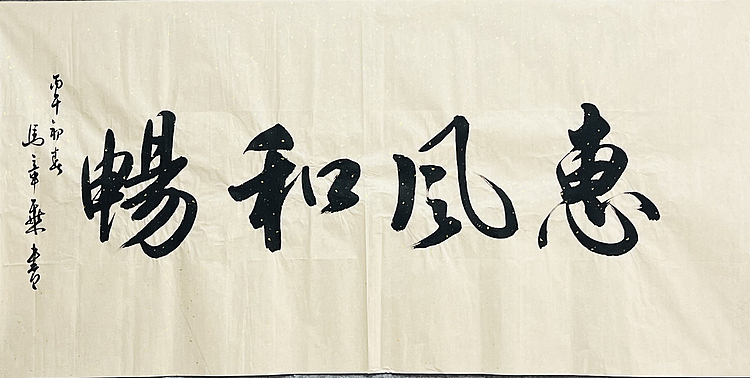 惠風和暢
丙午初春
馬章乘書